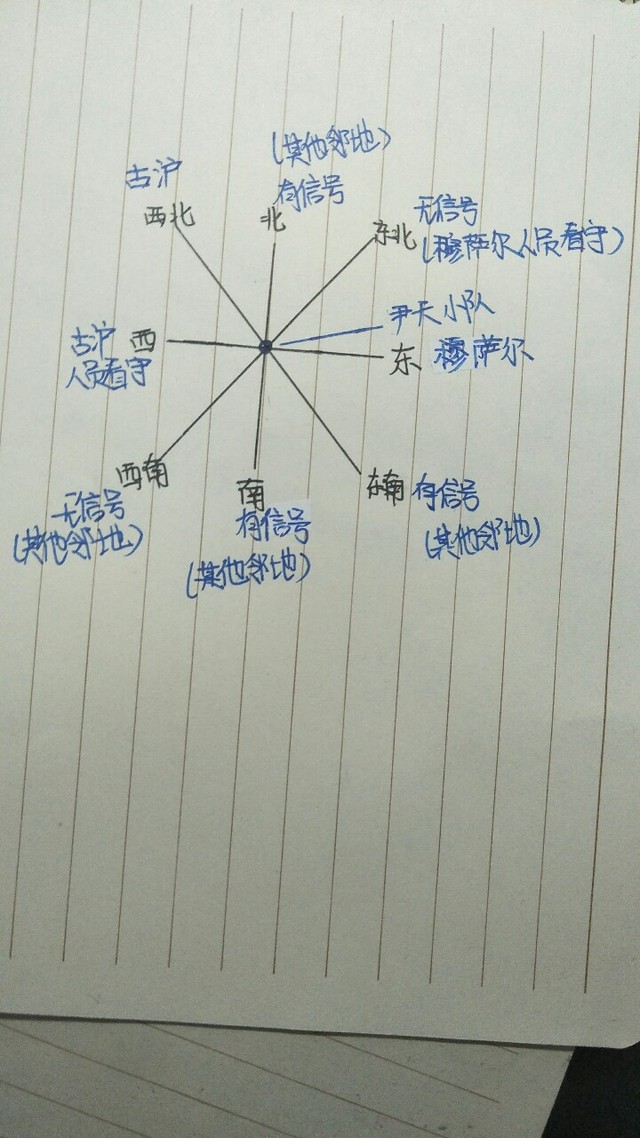 (其他邻地)
古沪
有信号
西北
北
无信号
东北
(穆萨尔人员看守)
尹天小队
古沪 西
人员看守
东 穆萨尔
西南
无信号
(其他邻地)
南
有信号
(其他邻地)
东南 有信号
(其他邻地)